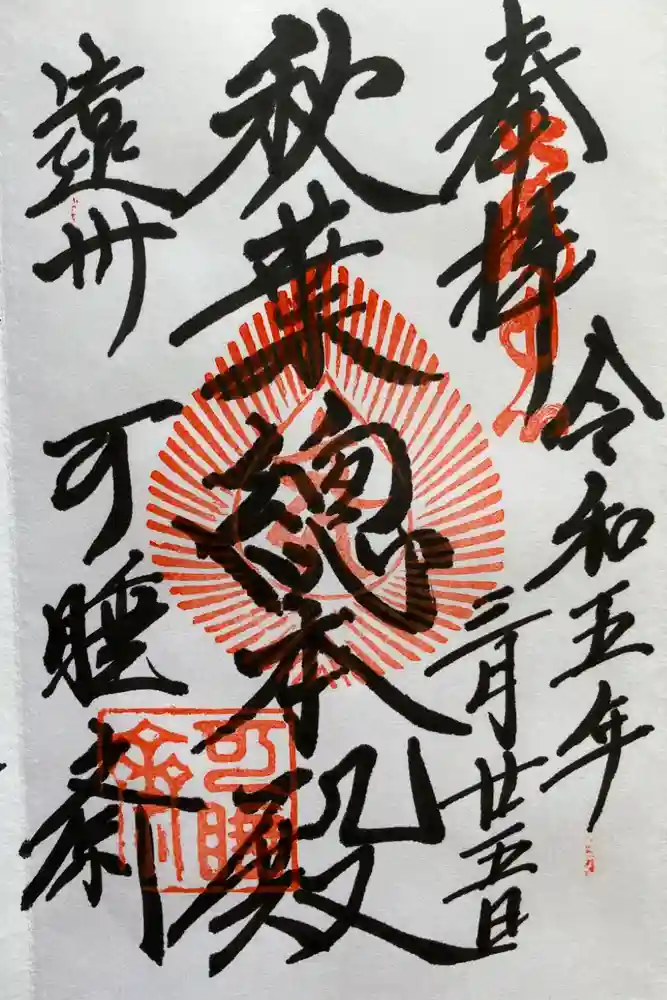 奉拝
令和五年
三月廿五日
秋葉總本殿
遠州
可睡斎
可睡